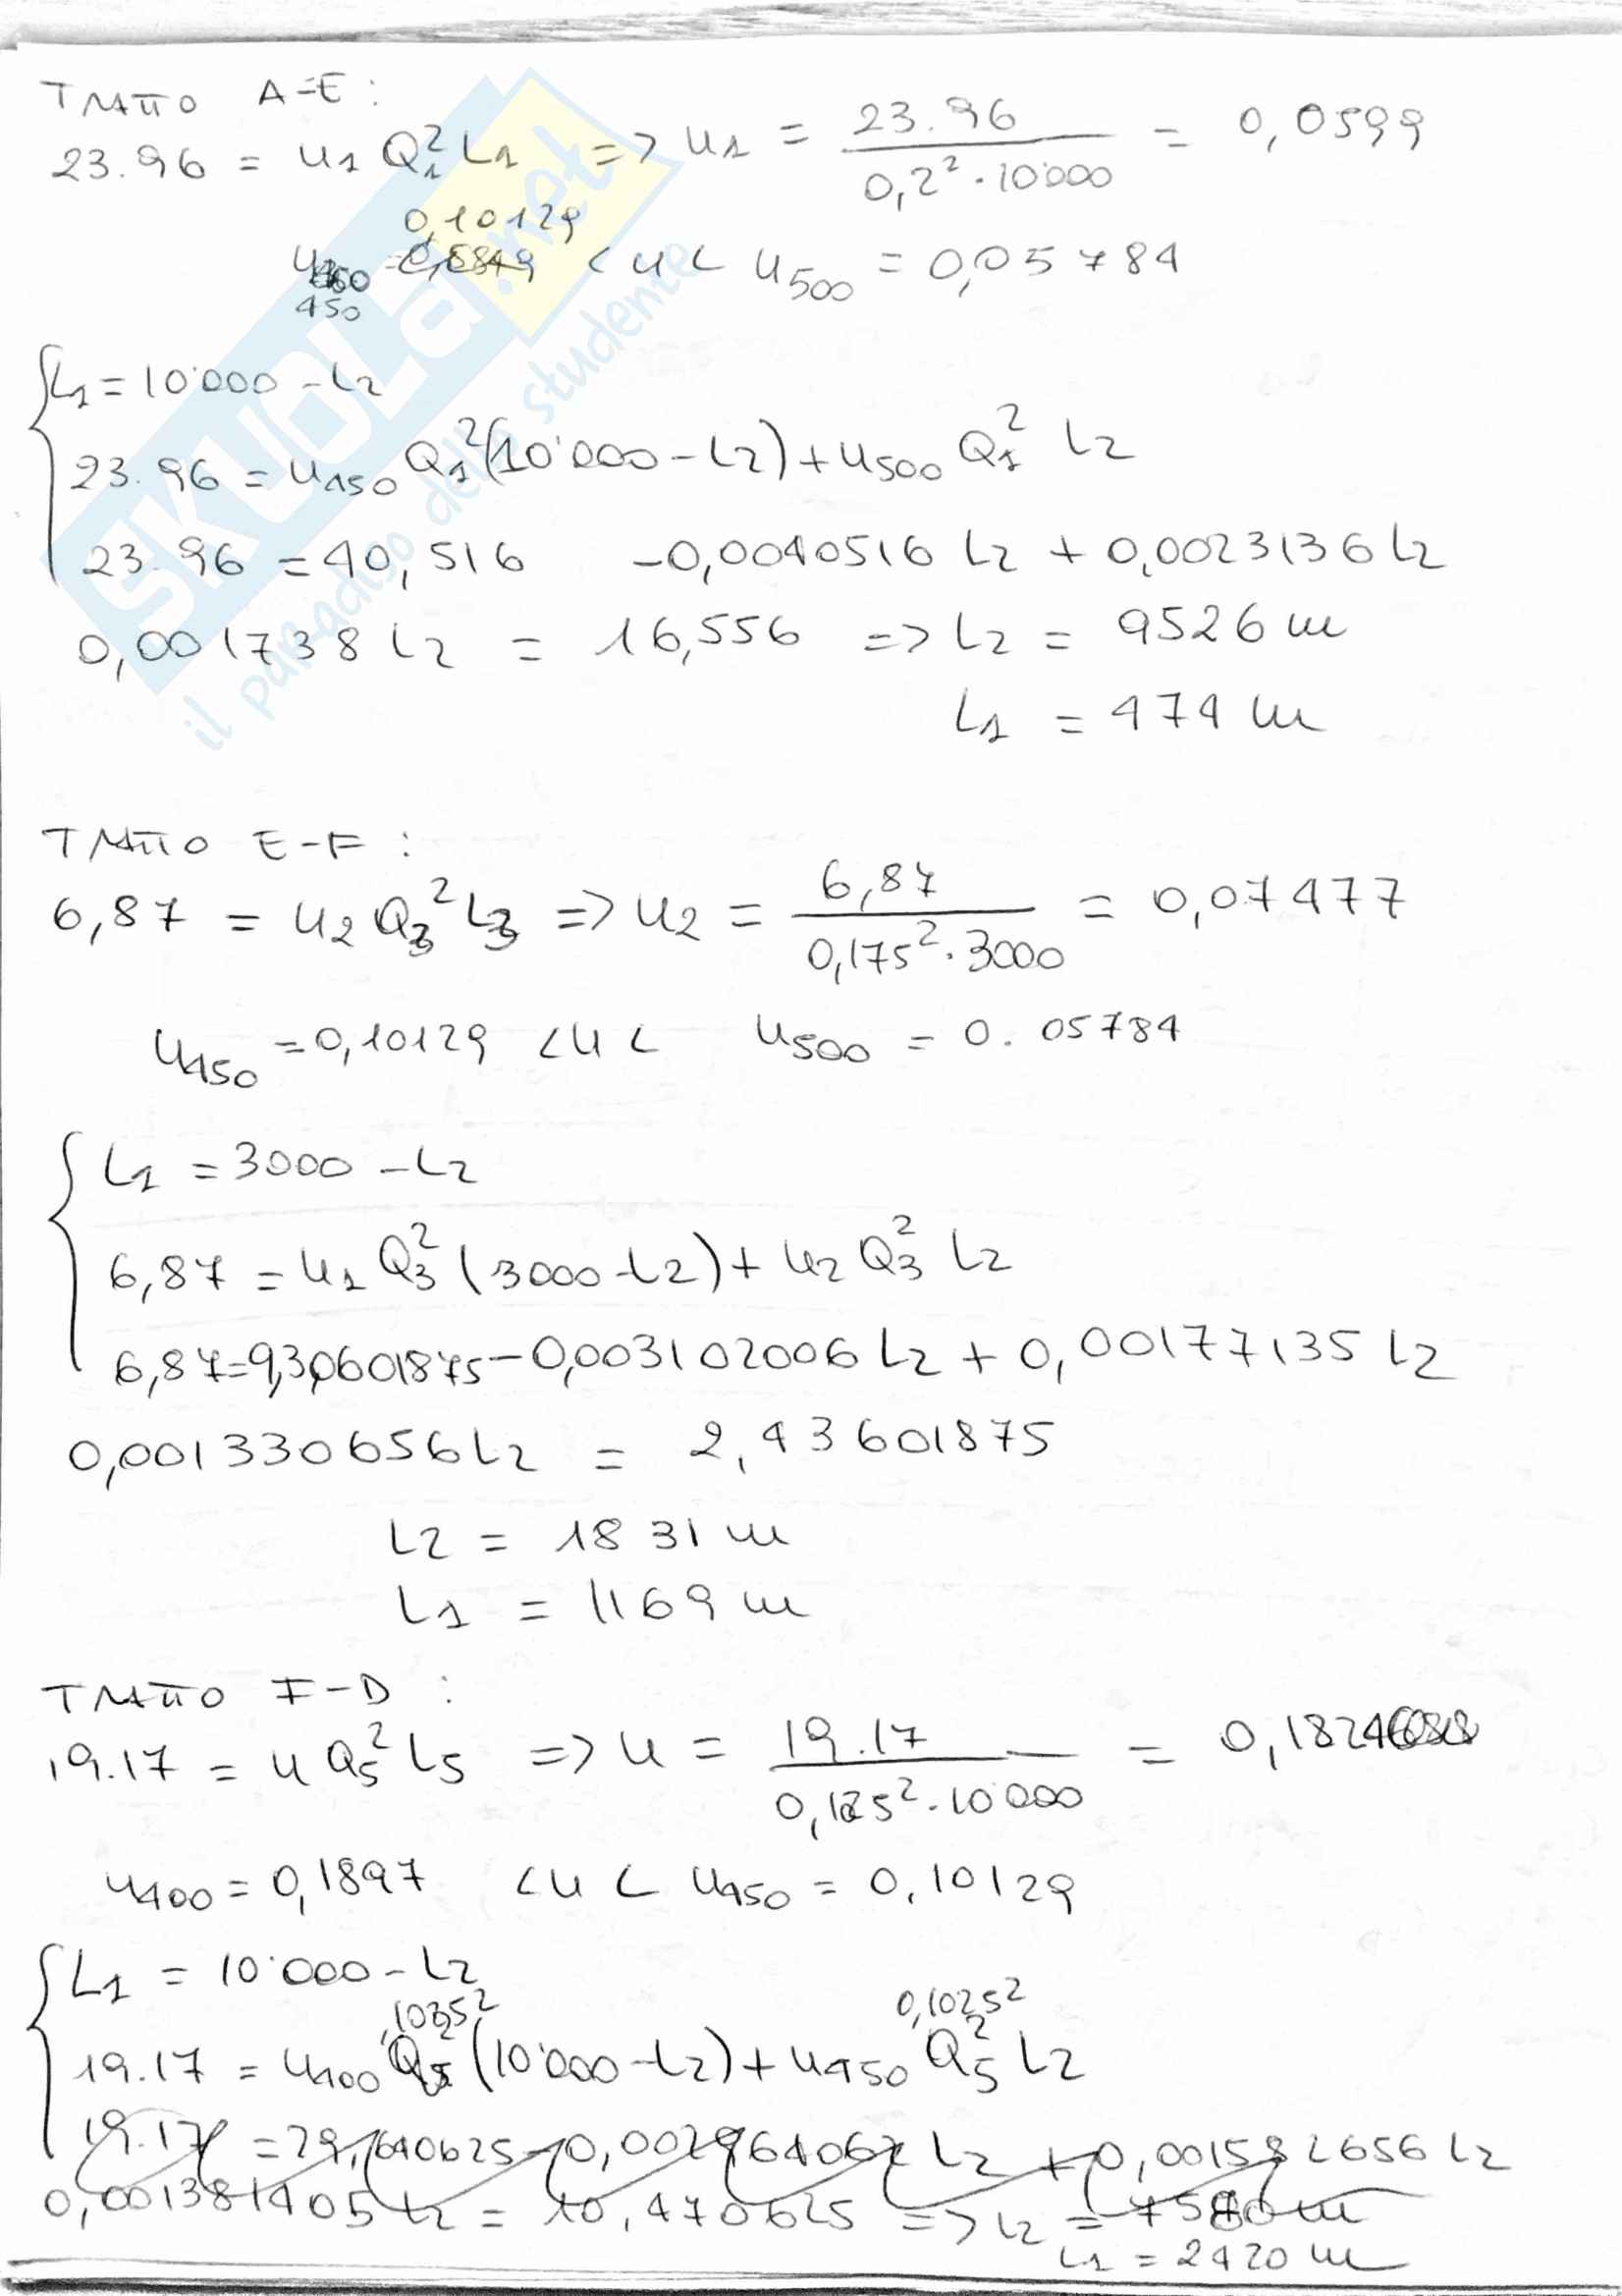 TRATTO A-E :
23.96 = u1 Q1² L1 => u1 = 23.96 / 0,2² · 10'000 = 0,0599
0,10129
u450 = < u < u500 = 0,05784
L1 = 10'000 - L2
23.96 = u450 Q1² (10'000 - L2) + u500 Q1² L2
23.96 = 40,516 - 0,0040516 L2 + 0,0023136 L2
0,001738 L2 = 16,556 => L2 = 9526 m
L1 = 474 m
TRATTO E-F :
6,87 = u2 Q3² L3 => u2 = 6,87 / 0,175² · 3000 = 0,07477
u450 = 0,10129 < u < u500 = 0.05784
L1 = 3000 - L2
6,87 = u1 Q3² (3000 - L2) + u2 Q3² L2
6,87 = 9,30601875 - 0,003102006 L2 + 0,00177135 L2
0,001330656 L2 = 2,43601875
L2 = 1831 m
L1 = 1169 m
TRATTO F-D :
19.17 = u Q5² L5 => u = 19.17 / · 10'000 =
u400 = 0,1897 < u < u450 = 0,10129
L1 = 10'000 - L2
0,1025²
19.17 = u400 (10'000 - L2) + u450 Q5² L2
19.17 = 29,640625 - L2 + 0,001582656 L2
0,001381405 L2 = 10,470625 => L2 = 7580 m
L1 = 2420 m
SKUOLA.net
il paradiso dello studente